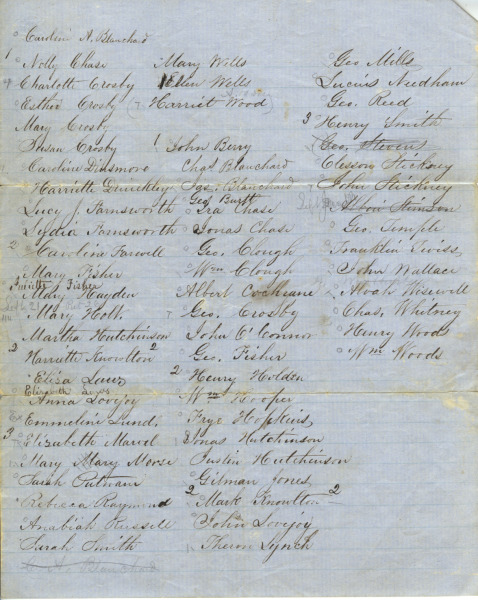 Caroline A. Blanchard
1
Nolly Chase
Charlotte Crosby
Esther Crosby
Mary Crosby
Susan Crosby
Caroline Dinsmore
Harriett Dunckley
Lucy J. Farnsworth
Lydia Farnsworth
2
Caroline Farwell
Mary Fisher
Fisher
Mary Hayden
Mary Holt
Martha Hutchinson 2
2
Harriette Knowlton
Eliza
Elizabeth
Anna Lovejoy
Emmeline Lund
3
Elizabeth Marvel
Mary Mary Morse
Sarah Putnam
Rebecca Raymond
Anabiah Russell
Sarah Smith
Blanchard
Mary Wells
Ellen Wells
Harriet Wood
1 John Berry
Chas Blanchard
Jas. Blanchard
Geo Burtt
Ira Chase
Jonas Chase
Geo. Clough
Wm Clough
Albert Cochrane
Geo. Crosby
John O'Connor
Geo. Fisher
2 Henry Holden
Wm Hooper
Frye Hopkins
Jonas Hutchinson
Justin Hutchinson
Gilman Jones
2 Mark Knowlton 2
John Lovejoy
Theron Lynch
Geo Mills
Lucius Needham
Geo. Reed
3 Henry Smith
Geo. Stevens
Stickney
John Stickney
Stinson
Geo. Temple
Franklin Twiss
John Wallace
Noah Wiswell
Chas. Whitney
Henry Woods
Wm Woods